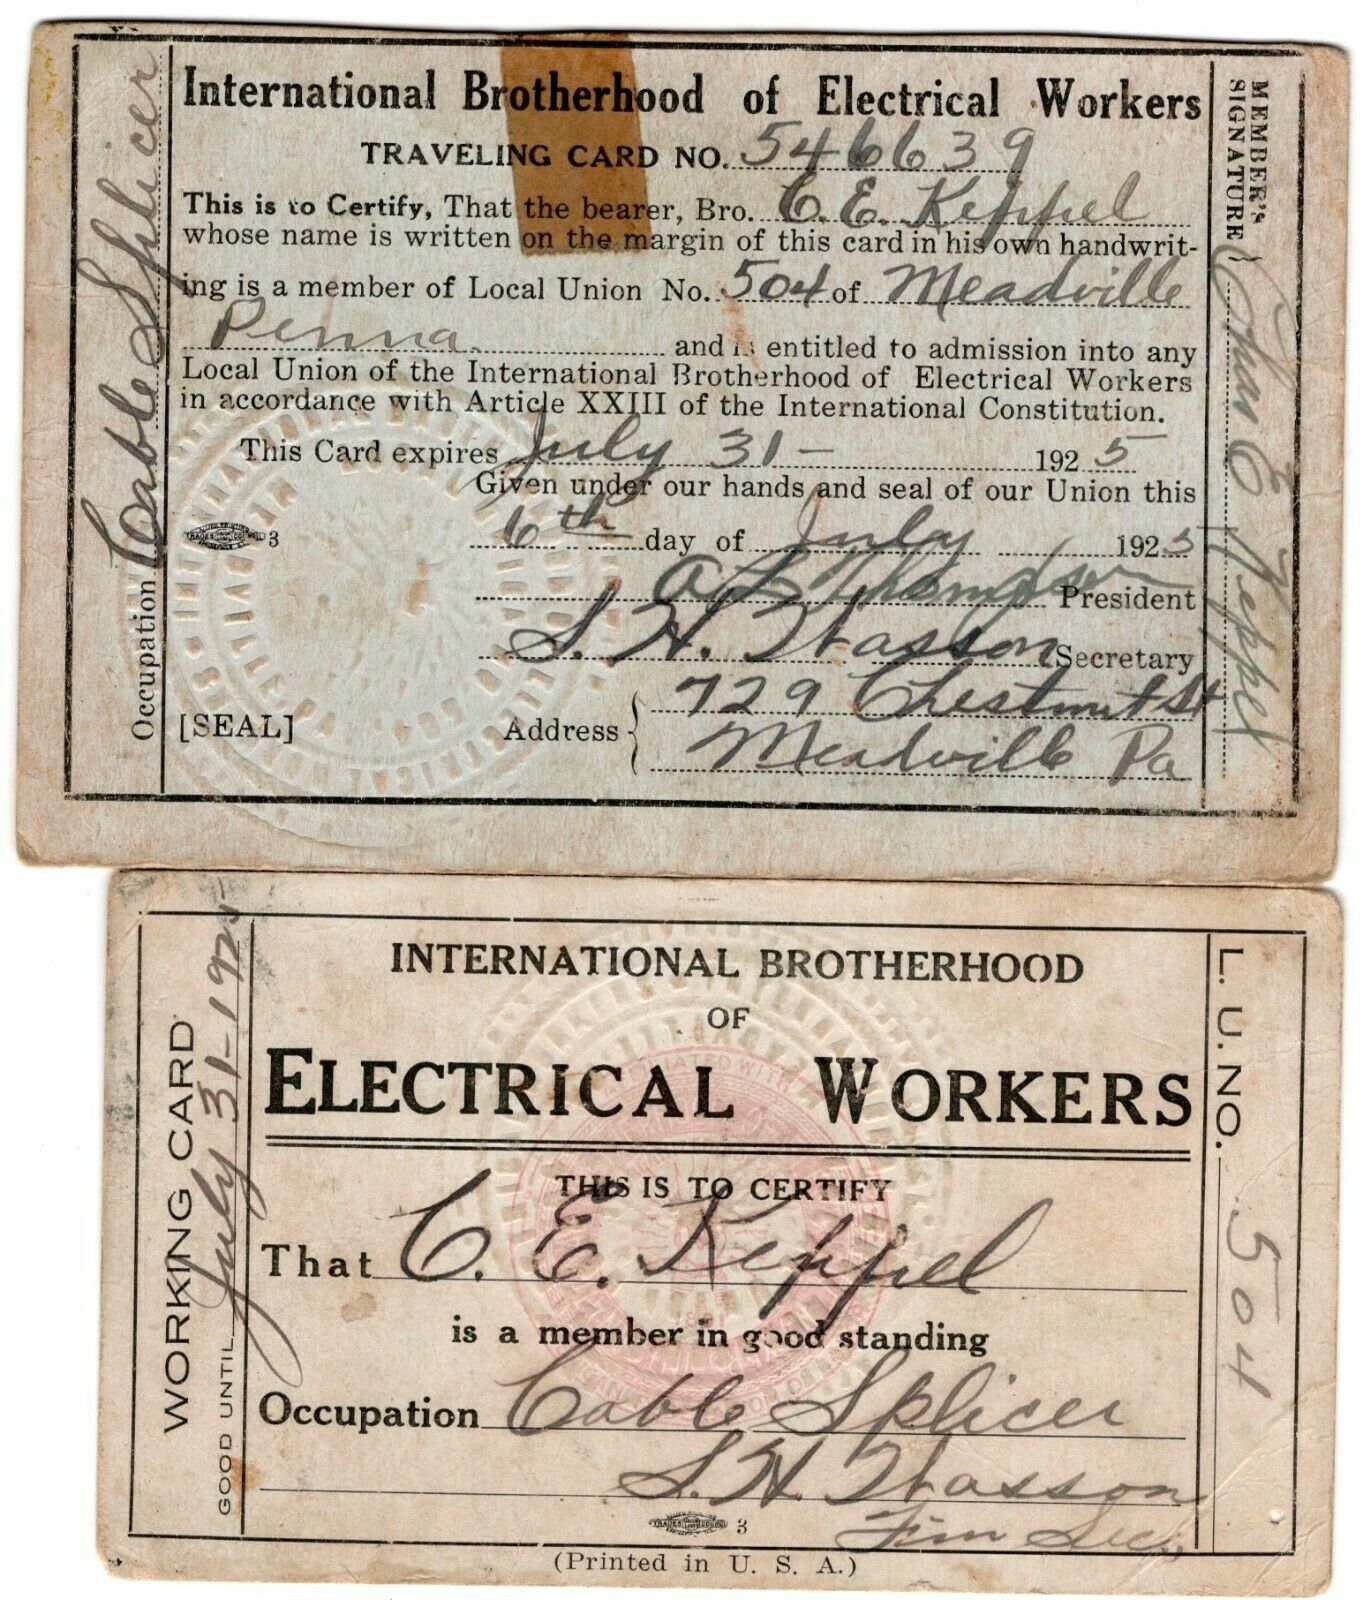 International Brotherhood of Electrical Workers
TRAVELING CARD NO. 546639
This is to Certify, That the bearer, Bro. C. E. Keppel
whose name is written on the margin of this card in his own handwrit-
ing is a member of Local Union No. 504 of Meadville
Penna. and is entitled to admission into any
Local Union of the International Brotherhood of Electrical Workers
in accordance with Article XXIII of the International Constitution.
This Card expires July 31- 1925
Given under our hands and seal of our Union this
6th day of July 1925
A L Thompson President
S. H. Wasson Secretary
[SEAL] Address 729 Chestnut St
Meadville Pa
3
Occupation Cable Splicer
MEMBER'S
SIGNATURE Chas E Keppel
INTERNATIONAL BROTHERHOOD
OF
ELECTRICAL WORKERS
THIS IS TO CERTIFY
That C. E. Keppel
is a member in good standing
Occupation Cable Splicer
S. H. Wasson
Fin Sec.
3
(Printed in U. S. A.)
WORKING CARD
GOOD UNTIL July 31-1925
L. U. NO. 504